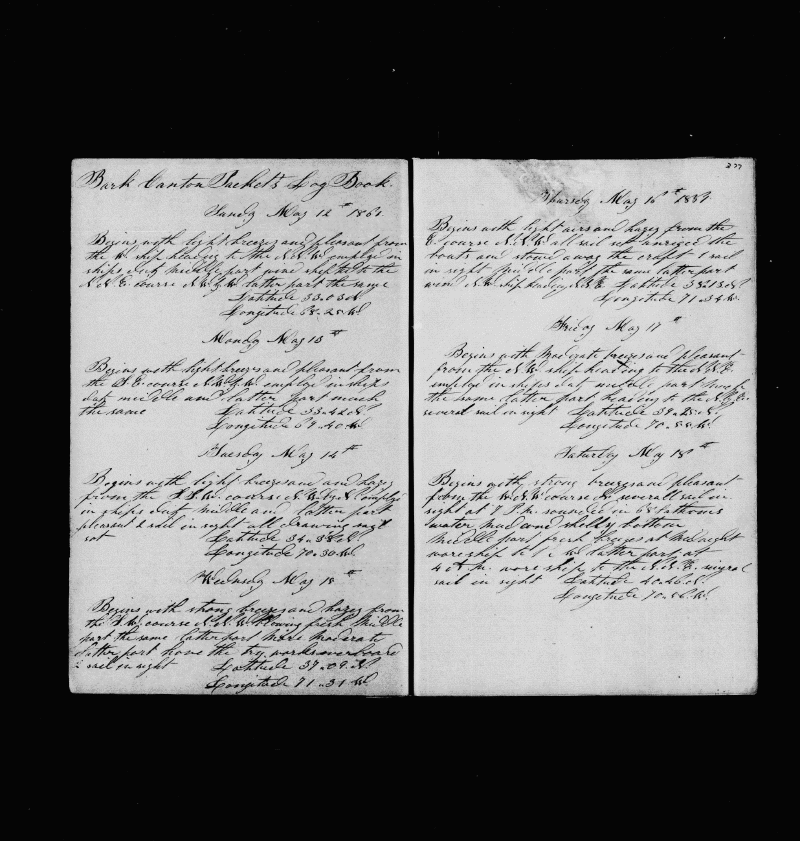 Bark Canton Packets Log Book.
Sundy May 12th 1861
Begins with light breezes and pleasant from
the W ship heading to the N.N.W employe in
ships duty middle part wore ship to the
N.N.E. course N.W by W latter part the same
Latitude 33.03 N
Longitude 68.25 W
Monday May 13th
Begins with light breezes and pleasant from
the S.E. course N.W by W employe in ships
duty middle and latter part much
the same Latitude 33.42 N
Longitude 69.40 W
Tuesday May 14th
Begins with light breezes and and hazy
from the S.S.W. course N.W by N employe
in ships duty middle and latter part
pleasant 2 sail in sight all drawing sail
set Latitude 34.38 N
Longitude 70.30 W
Wedensdy May 15th
Begins with strong breezes and hazy from
the S.W. course N.N.W. blowing fresh middle
part the same latter part more moderate
latter part hove the try works overboard
1 sail in sight Latitude 37.09 N
Longitude 71.31 W
277
Thursdy May 16th 1861
Begins with light airs and hazy from the
E. course N.N.W all sail set unriged the
boats and stowed away the craft 1 sail
in sight middle part the same latter part
wind N.W. ship heading N.N.E Latitude 38.13 N
Longitude 71.34 W.
Friday May 17th
Begins with moderate breezes and pleasant
from the N.W ship heading to the N.N.E
employe in ships duty middle part much
the same latter part heading to the N.N.E.
severall sail in sight Latitude 39.25 N
Longitude 70.55 W.
Saturday May 18th
Begins with strong breezes and pleasant
from the W.N.W course N severall sail in
sight at 7 P.m. sounded in 68 fathoms
water mud and shelly bottom
middle part fresh breezes at midnight
wore ship to S.W latter part at
4 A.m. wore ship to the N.N.E.
sail in sight Latitude 40.26 N
Longitude 70.56 W.